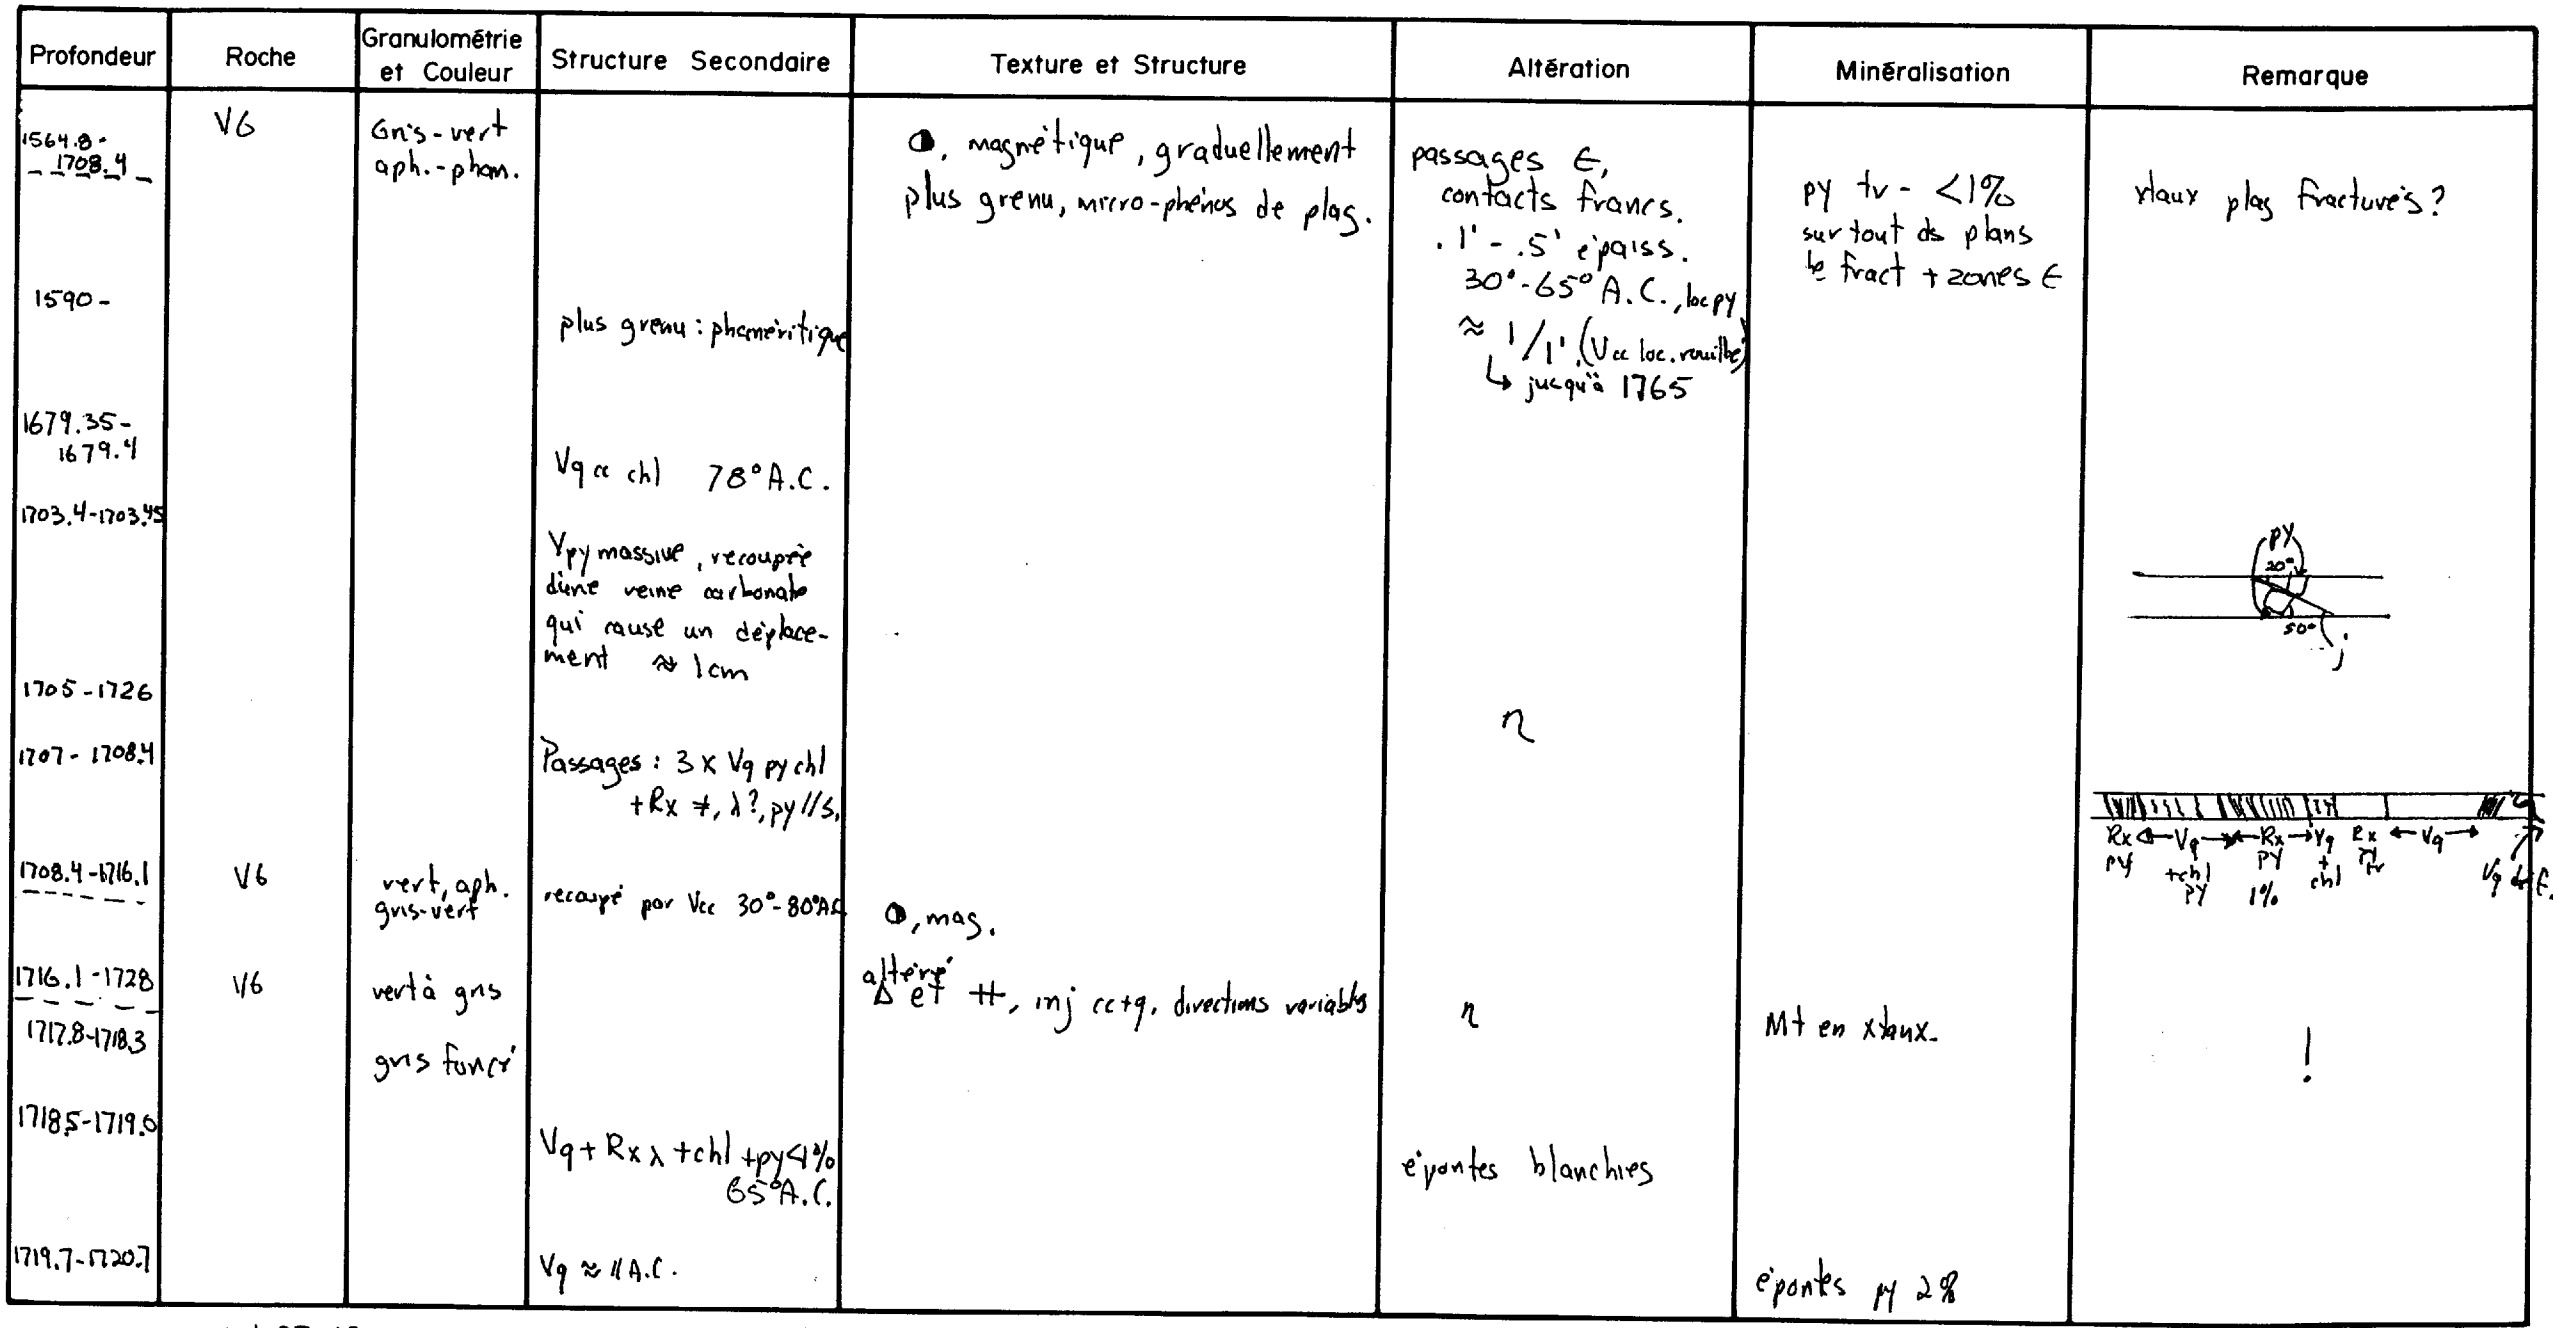 Profondeur
Roche
Granulométrie
et Couleur
Structure Secondaire
Texture et Structure
Altération
Minéralisation
Remarque
1564.8-
1708.4
V6
Gris-vert
aph.-phan.
◑, magnétique, graduellement
plus grenu, micro-phénos de plag.
passages ∈,
contacts francs.
.1' - .5' épaiss.
30°-65° A.C., loc py
≈ 1/1' (Vcc loc. rouillé)
↳ jusqu'à 1765
py tr - <1%
surtout ds plans
de fract + zones ∈
xtaux plag fracturés?
1590-
plus grenu: phanéritique
1679.35-
1679.4
Vq cc chl 78° A.C.
1703.4-1703.45
Vpy massive, recoupée
d'une veine carbonate
qui cause un déplace-
ment ≈ 1cm
py
20°
50°
1705-1726
η
1707-1708.4
Passages: 3 x Vq py chl
+Rx ≠, λ?, py//S,
Rx
py
←Vq→
+chl
py
←Rx→
py
1%
Vq
+
chl
Rx
py
tr
←Vq→
Vq
1708.4-1716.1
V6
vert, aph.
gris-vert
recoupé par Vcc 30°-80° A.C.
◑, mag.
1716.1-1728
V6
vert à gris
altéré
Δ et #, inj cc+q, directions variables
η
Mt en xtaux.
1717.8-1718.3
gris foncé
!
1718.5-1719.0
Vq + Rx λ +chl +py<1%
65° A.C.
épontes blanchies
1719.7-1720.7
Vq ≈ // A.C.
épontes py 2%